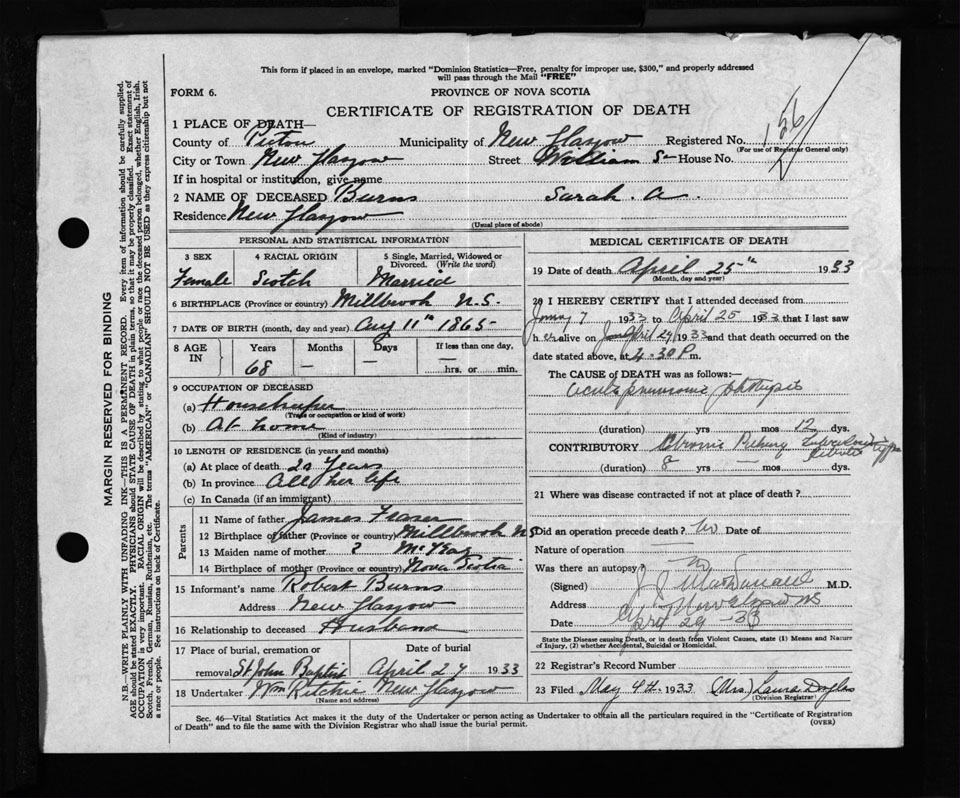 This form if placed in an envelope, marked "Dominion Statistics—Free, penalty for improper use, $300," and properly addressed
will pass through the Mail "FREE"
FORM 6.
PROVINCE OF NOVA SCOTIA
CERTIFICATE OF REGISTRATION OF DEATH
1 PLACE OF DEATH—
County of Pictou Municipality of New Glasgow Registered No. 156
(For use of Registrar General only)
City or Town New Glasgow Street William St House No.
If in hospital or institution, give name
2 NAME OF DECEASED Burns Sarah. A.
Residence New Glasgow
(Usual place of abode)
PERSONAL AND STATISTICAL INFORMATION
3 SEX 4 RACIAL ORIGIN 5 Single, Married, Widowed or
Divorced. (Write the word)
Female Scotch Married
6 BIRTHPLACE (Province or country) Millbrook N.S.
7 DATE OF BIRTH (month, day and year) Aug 11th 1865
8 AGE IN Years Months Days If less than one day,
68 — — — hrs. or min.
9 OCCUPATION OF DECEASED
(a) Housekeeper
(Trade or occupation or kind of work)
(b) At home
(Kind of industry)
10 LENGTH OF RESIDENCE (in years and months)
(a) At place of death 20 Years
(b) In province All her life
(c) In Canada (if an immigrant)
Parents
11 Name of father James Fraser
12 Birthplace of father (Province or country) Millbrook NS
13 Maiden name of mother ? McKay
14 Birthplace of mother (Province or country) Nova Scotia
15 Informant's name Robert Burns
Address New Glasgow
16 Relationship to deceased Husband
17 Place of burial, cremation or Date of burial
removal St John Baptist April 27 1933
18 Undertaker Wm Ritchie New Glasgow
(Name and address)
MEDICAL CERTIFICATE OF DEATH
19 Date of death April 25th 1933
(Month, day and year)
20 I HEREBY CERTIFY that I attended deceased from
7 1933 to April 25 1933 that I last saw
h er alive on April 24 1933 and that death occurred on the
date stated above, at 4.30 P m.
The CAUSE of DEATH was as follows:—
Acute pneumonic phthisis
(duration) yrs mos 12 dys.
CONTRIBUTORY Chronic
(duration) 8 yrs — mos dys.
21 Where was disease contracted if not at place of death?
Did an operation precede death? No Date of
Nature of operation
Was there an autopsy? No
(Signed) M.D.
Address New Glasgow NS
Date April 29 -33
State the Disease causing Death, or in death from Violent Causes, state (1) Means and Nature
of Injury, (2) whether Accidental, Suicidal or Homicidal.
22 Registrar's Record Number
23 Filed May 4th 1933 (Mrs) Laura
(Division Registrar)
Sec. 46—Vital Statistics Act makes it the duty of the Undertaker or person acting as Undertaker to obtain all the particulars required in the "Certificate of Registration
of Death" and to file the same with the Division Registrar who shall issue the burial permit. (OVER)
MARGIN RESERVED FOR BINDING
N.B.—WRITE PLAINLY WITH UNFADING INK—THIS IS A PERMANENT RECORD. Every item of information should be carefully supplied.
AGE should be stated EXACTLY. PHYSICIANS should STATE CAUSE OF DEATH in plain terms, so that it may be properly classified. Exact statement of
OCCUPATION is very important. RACIAL ORIGIN will be described by stating to what people or race the deceased person belonged, whether English, Irish,
Scotch, French, German, Russian, Ruthenian, etc. The terms "AMERICAN" or "CANADIAN" SHOULD NOT BE USED as they express citizenship but not
a race or people. See instructions on back of Certificate.